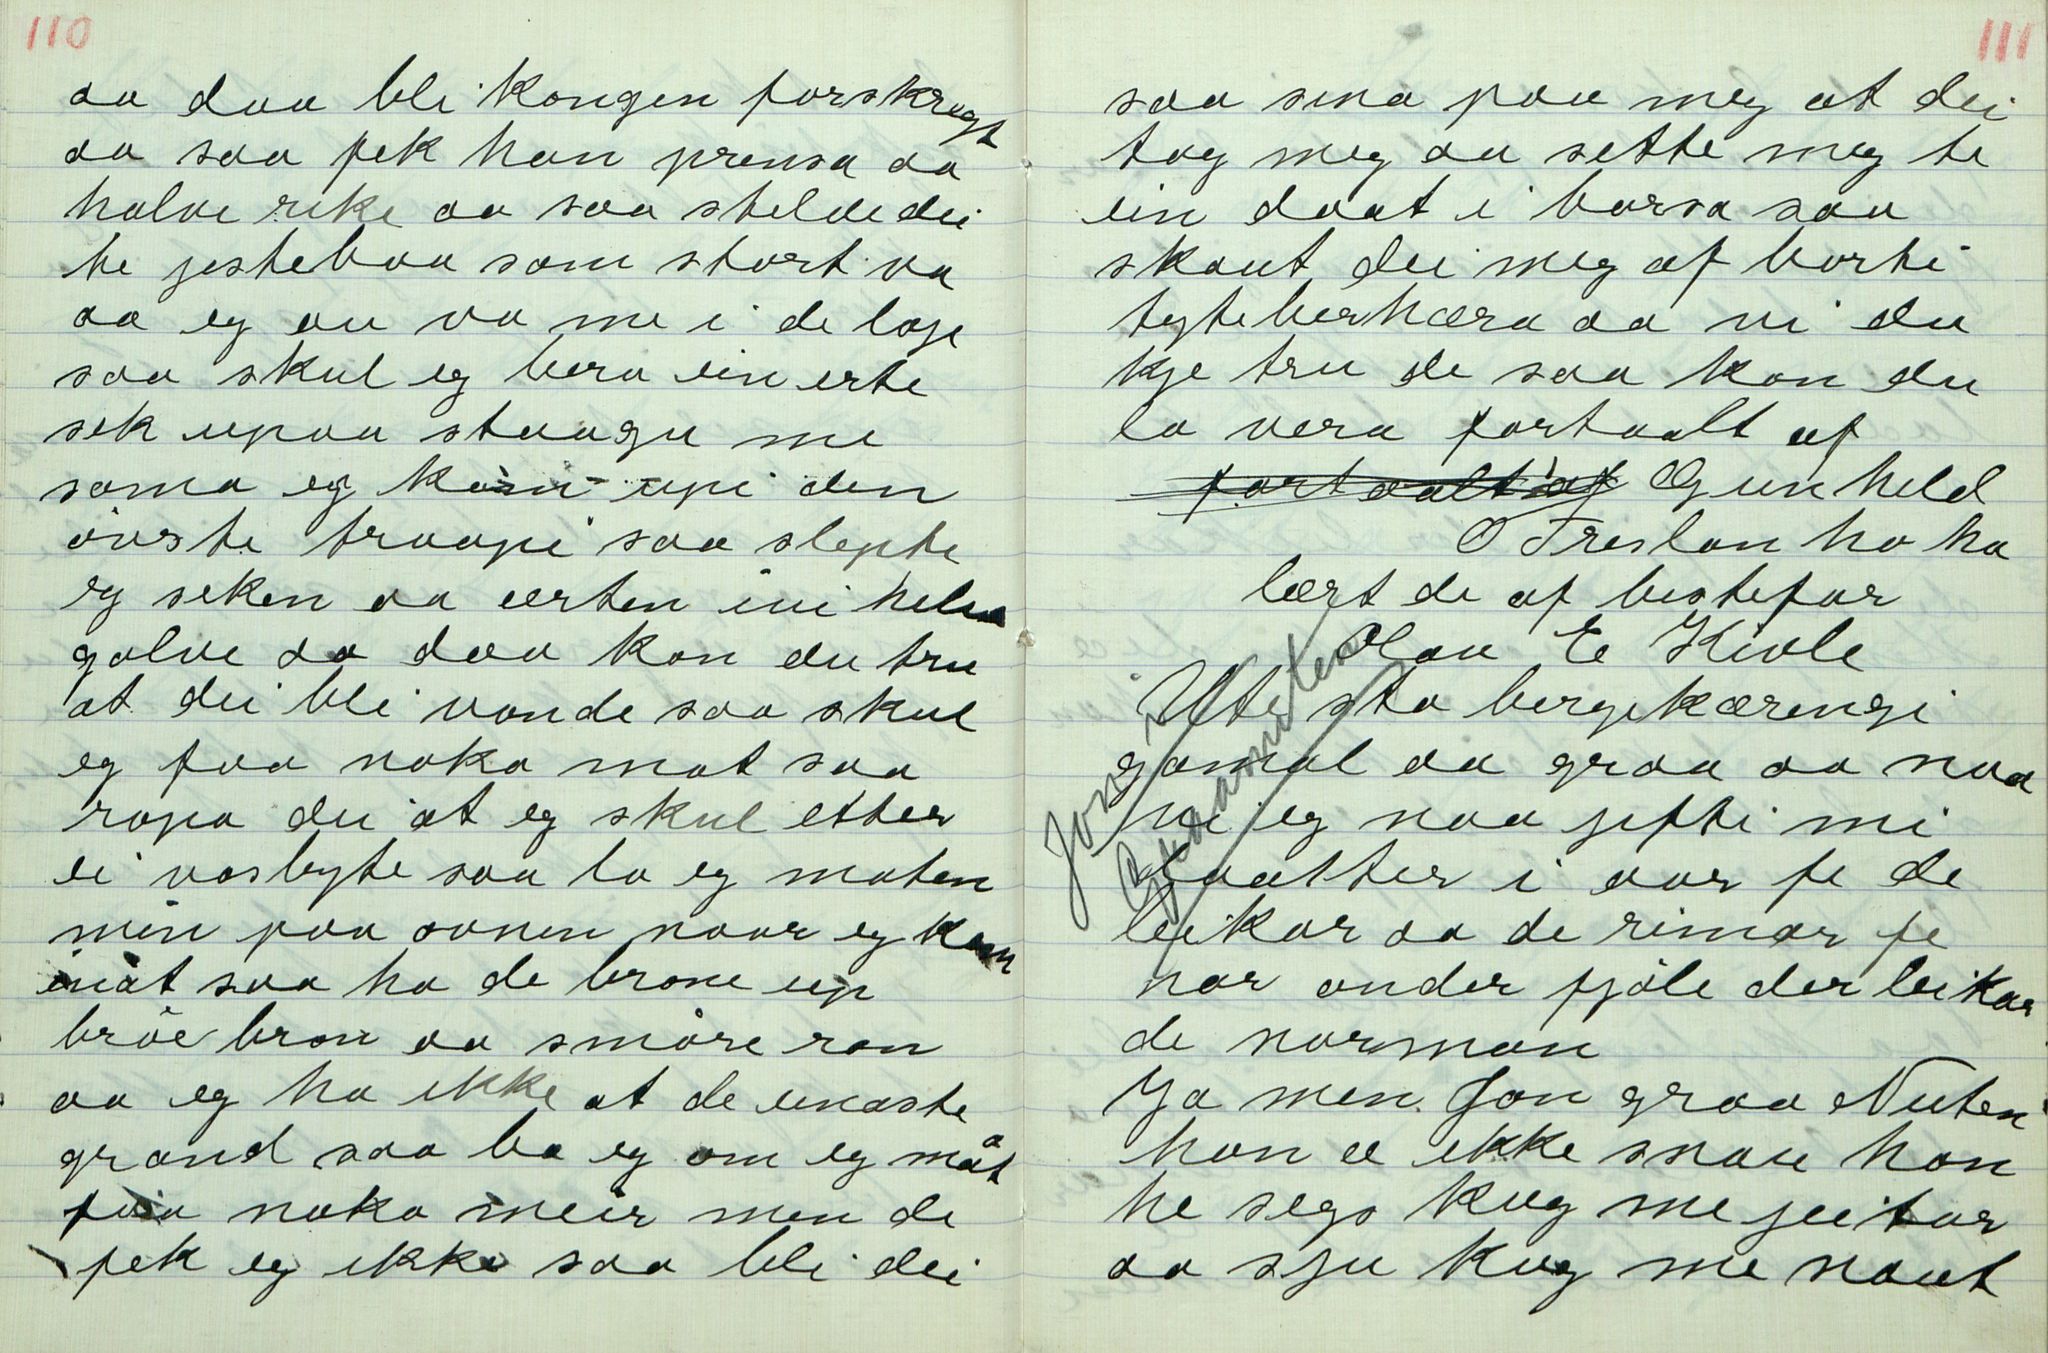 110
aa daa bli kongen forskregt
aa saa fek han prensa aa
halve rike aa saa stelde dei
te jestebaa som stort va
aa eg au va me i de laje
saa skul eg bera ein erte
sek upaa staagu me
sama eg kom upi den
övste traapi saa slepte
eg seken aa erten ini hela
golve aa daa kan du tru
at dei bli vonde saa skul
eg faa noko mat saa
ropa dei at eg skul etter
ei vasbyte saa la eg maten
min paa ovnen naar eg kom
inat saa ha de brone up
bröe bran aa smöre ran
aa eg ha ikke at de einaste
grand saa ba eg om eg måt
faa noko meir men de
fek eg ikke saa bli dei
111
saa sina paa meg at dei
tog meg aa sette meg te
ein daat i børsa saa
skaut dei meg af borti
tyteberhæra aa vi du
kje tru de saa kan du
la vera fortaalt af
fortaalt af Gunheld
O Treslan ho ha
lært de af bestefar
Olav E Kivle
Ute sta bergekærengi
gamal aa graa aa naa
vi eg naa jifti mi
daatter i aar fe de
leikar aa de rimar fe
nor onder fjöle der leikar
de norman
Jon i
Graanuten
Ja men Jon graa Nuten
han æ ikke snau han
he segs kug me jeitar
aa sju kug me naut